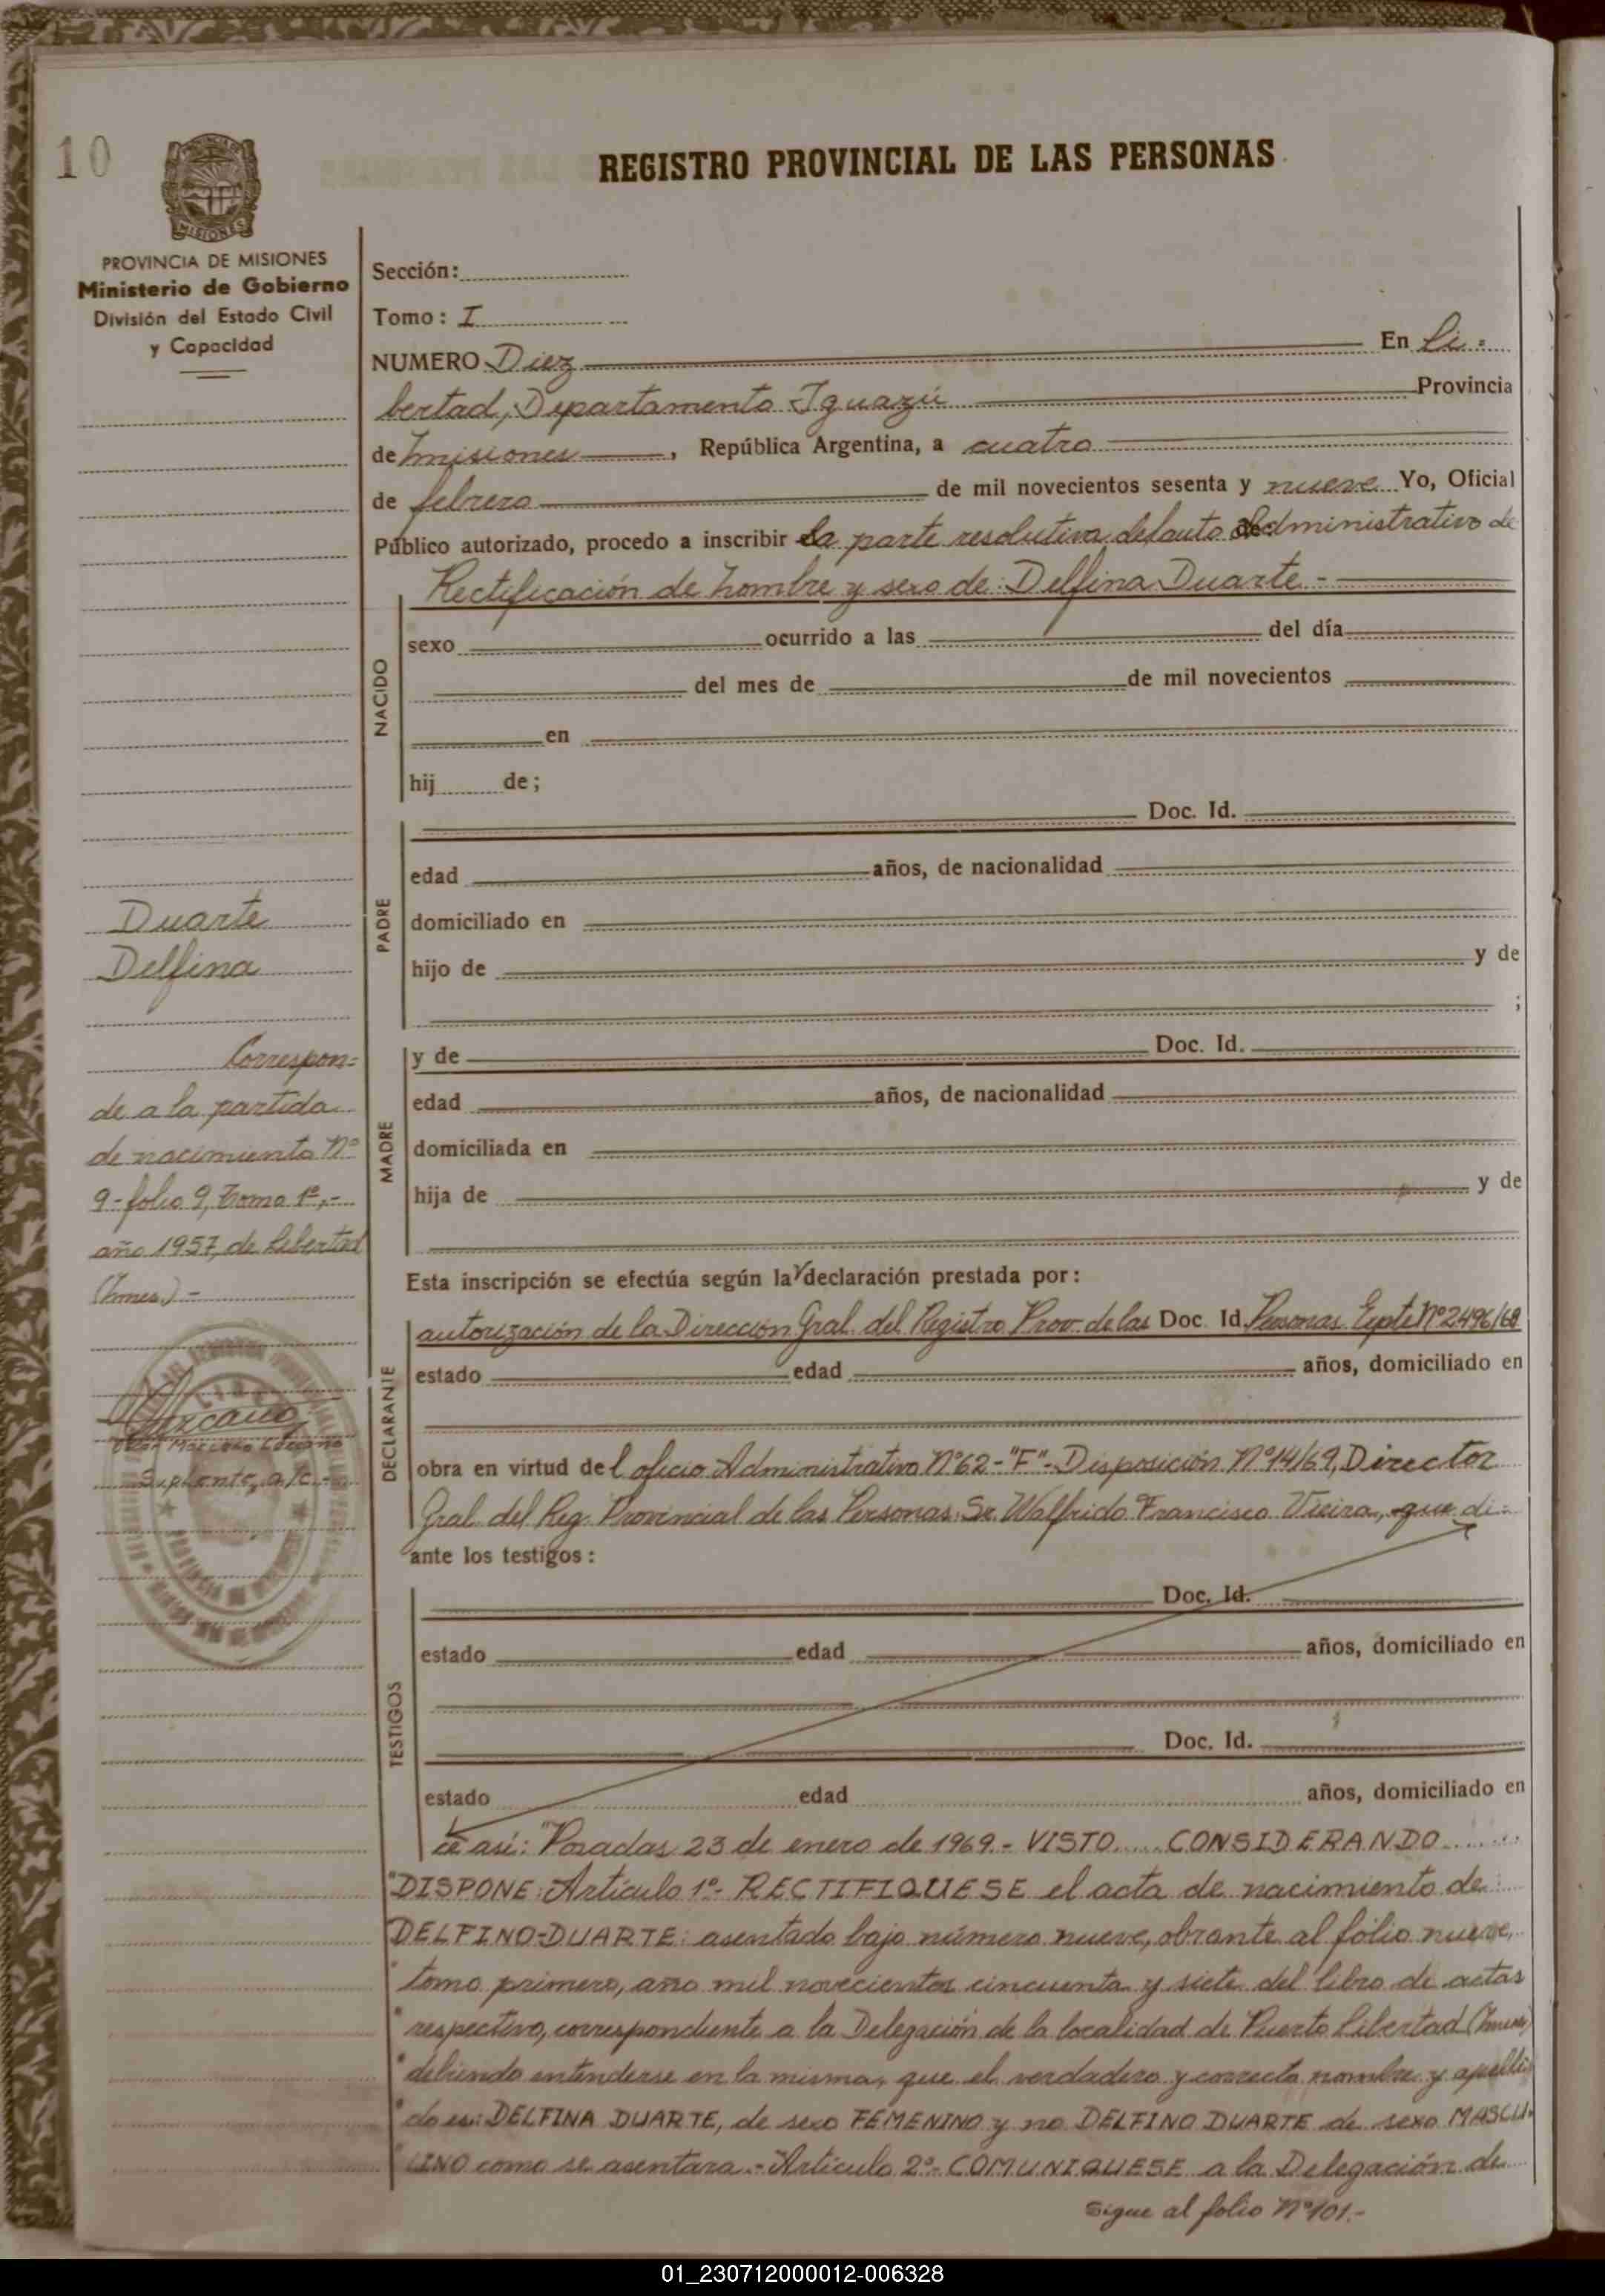 10
REGISTRO PROVINCIAL DE LAS PERSONAS
MISIONES
PROVINCIA DE MISIONES
Ministerio de Gobierno
División del Estado Civil
y Capacidad
Sección:
Tomo: I
NUMERO Diez En Li-
bertad, Departamento Iguazú Provincia
de Misiones, República Argentina, a cuatro
de febrero de mil novecientos sesenta y nueve Yo, Oficial
Público autorizado, procedo a inscribir la parte resolutiva del auto administrativo de
Rectificación de nombre y sexo de: Delfina Duarte.-
NACIDO
sexo ocurrido a las del día
del mes de de mil novecientos
en
hij de;
PADRE
Doc. Id.
edad años, de nacionalidad
domiciliado en
hijo de y de
;
Duarte
Delfina
Correspon=
de a la partida
de nacimiento Nº
9-folio 9, Tomo 1º,-
año 1957, de Libertad
(Mnes.)-
MADRE
y de Doc. Id.
edad años, de nacionalidad
domiciliada en
hija de y de
Esta inscripción se efectúa según la declaración prestada por:
DECLARANTE
autorización de la Dirección Gral. del Registro Prov. de las Doc Id. Personas. Expte Nº 2496/68
estado edad años, domiciliado en
obra en virtud del oficio Administrativo Nº 62-"F"- Disposición Nº 14/69, Director
Gral. del Reg. Provincial de las Personas. Sr. Walfrido Francisco Vieira, que di-
ante los testigos:
Suplente, a/c.-
TESTIGOS
Doc. Id.
estado edad años, domiciliado en
Doc. Id.
estado edad años, domiciliado en
ce así: "Posadas 23 de enero de 1969.- VISTO..... CONSIDERANDO......
"DISPONE: Artículo 1º- RECTIFIQUESE el acta de nacimiento de:
DELFINO-DUARTE: asentado bajo número nueve, obrante al folio nueve,
" tomo primero, año mil novecientos cincuenta y siete del libro de actas
" respectivo, correspondiente a la Delegación de la localidad de Puerto Libertad (Mnes)
" debiendo entenderse en la misma, que el verdadero y correcto nombre y apelli
" do es: DELFINA DUARTE, de sexo FEMENINO y no DELFINO DUARTE de sexo MASCU-
" LINO como se asentara.- Artículo 2º- COMUNIQUESE a la Delegación de
Sigue al folio Nº 101.-
01_230712000012-006328